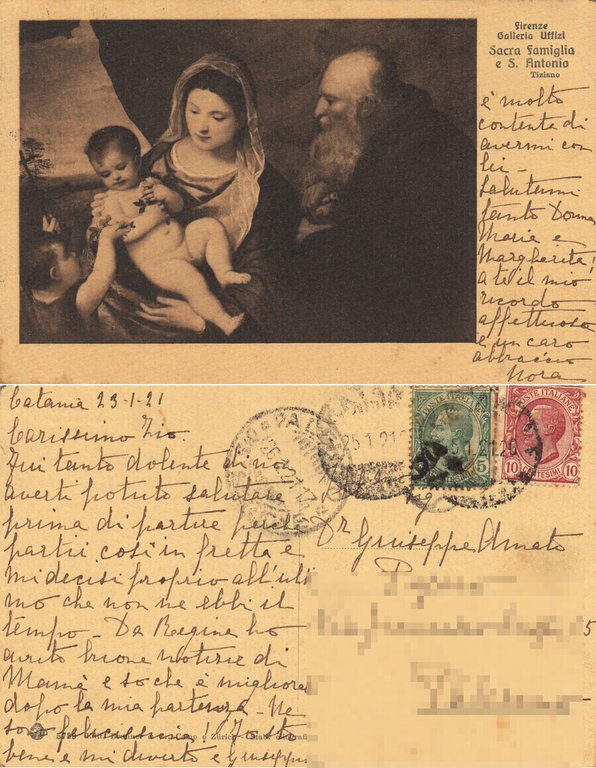 Firenze
Galleria Uffizi
Sacra Famiglia
e S. Antonio
Tiziano
è molto
contenta di
avermi con
lei -
Salutami
tanto Donna
Maria e
Margherita!
a te il mio
ricordo
affettuoso
e un caro
abbraccio
Nora
Catania 23-1-21
Carissimo Zio.
Fui tanto dolente di non
averti potuto salutare
prima di partire perchè
partii così in fretta e
mi decisi proprio all'ulti
mo che non ne ebbi il
tempo - Da Regina ho
avuto buone notizie di
Mamà e so che è migliorata
dopo la mia partenza - Ne
sono felicissima! Io sto
bene e mi diverto e Giuseppina
POSTE ITALIANE
5
POSTE ITALIANE
10 CENTESIMI 10
25.1.21
21.20
Dr Giuseppe Amato
5
Zürich